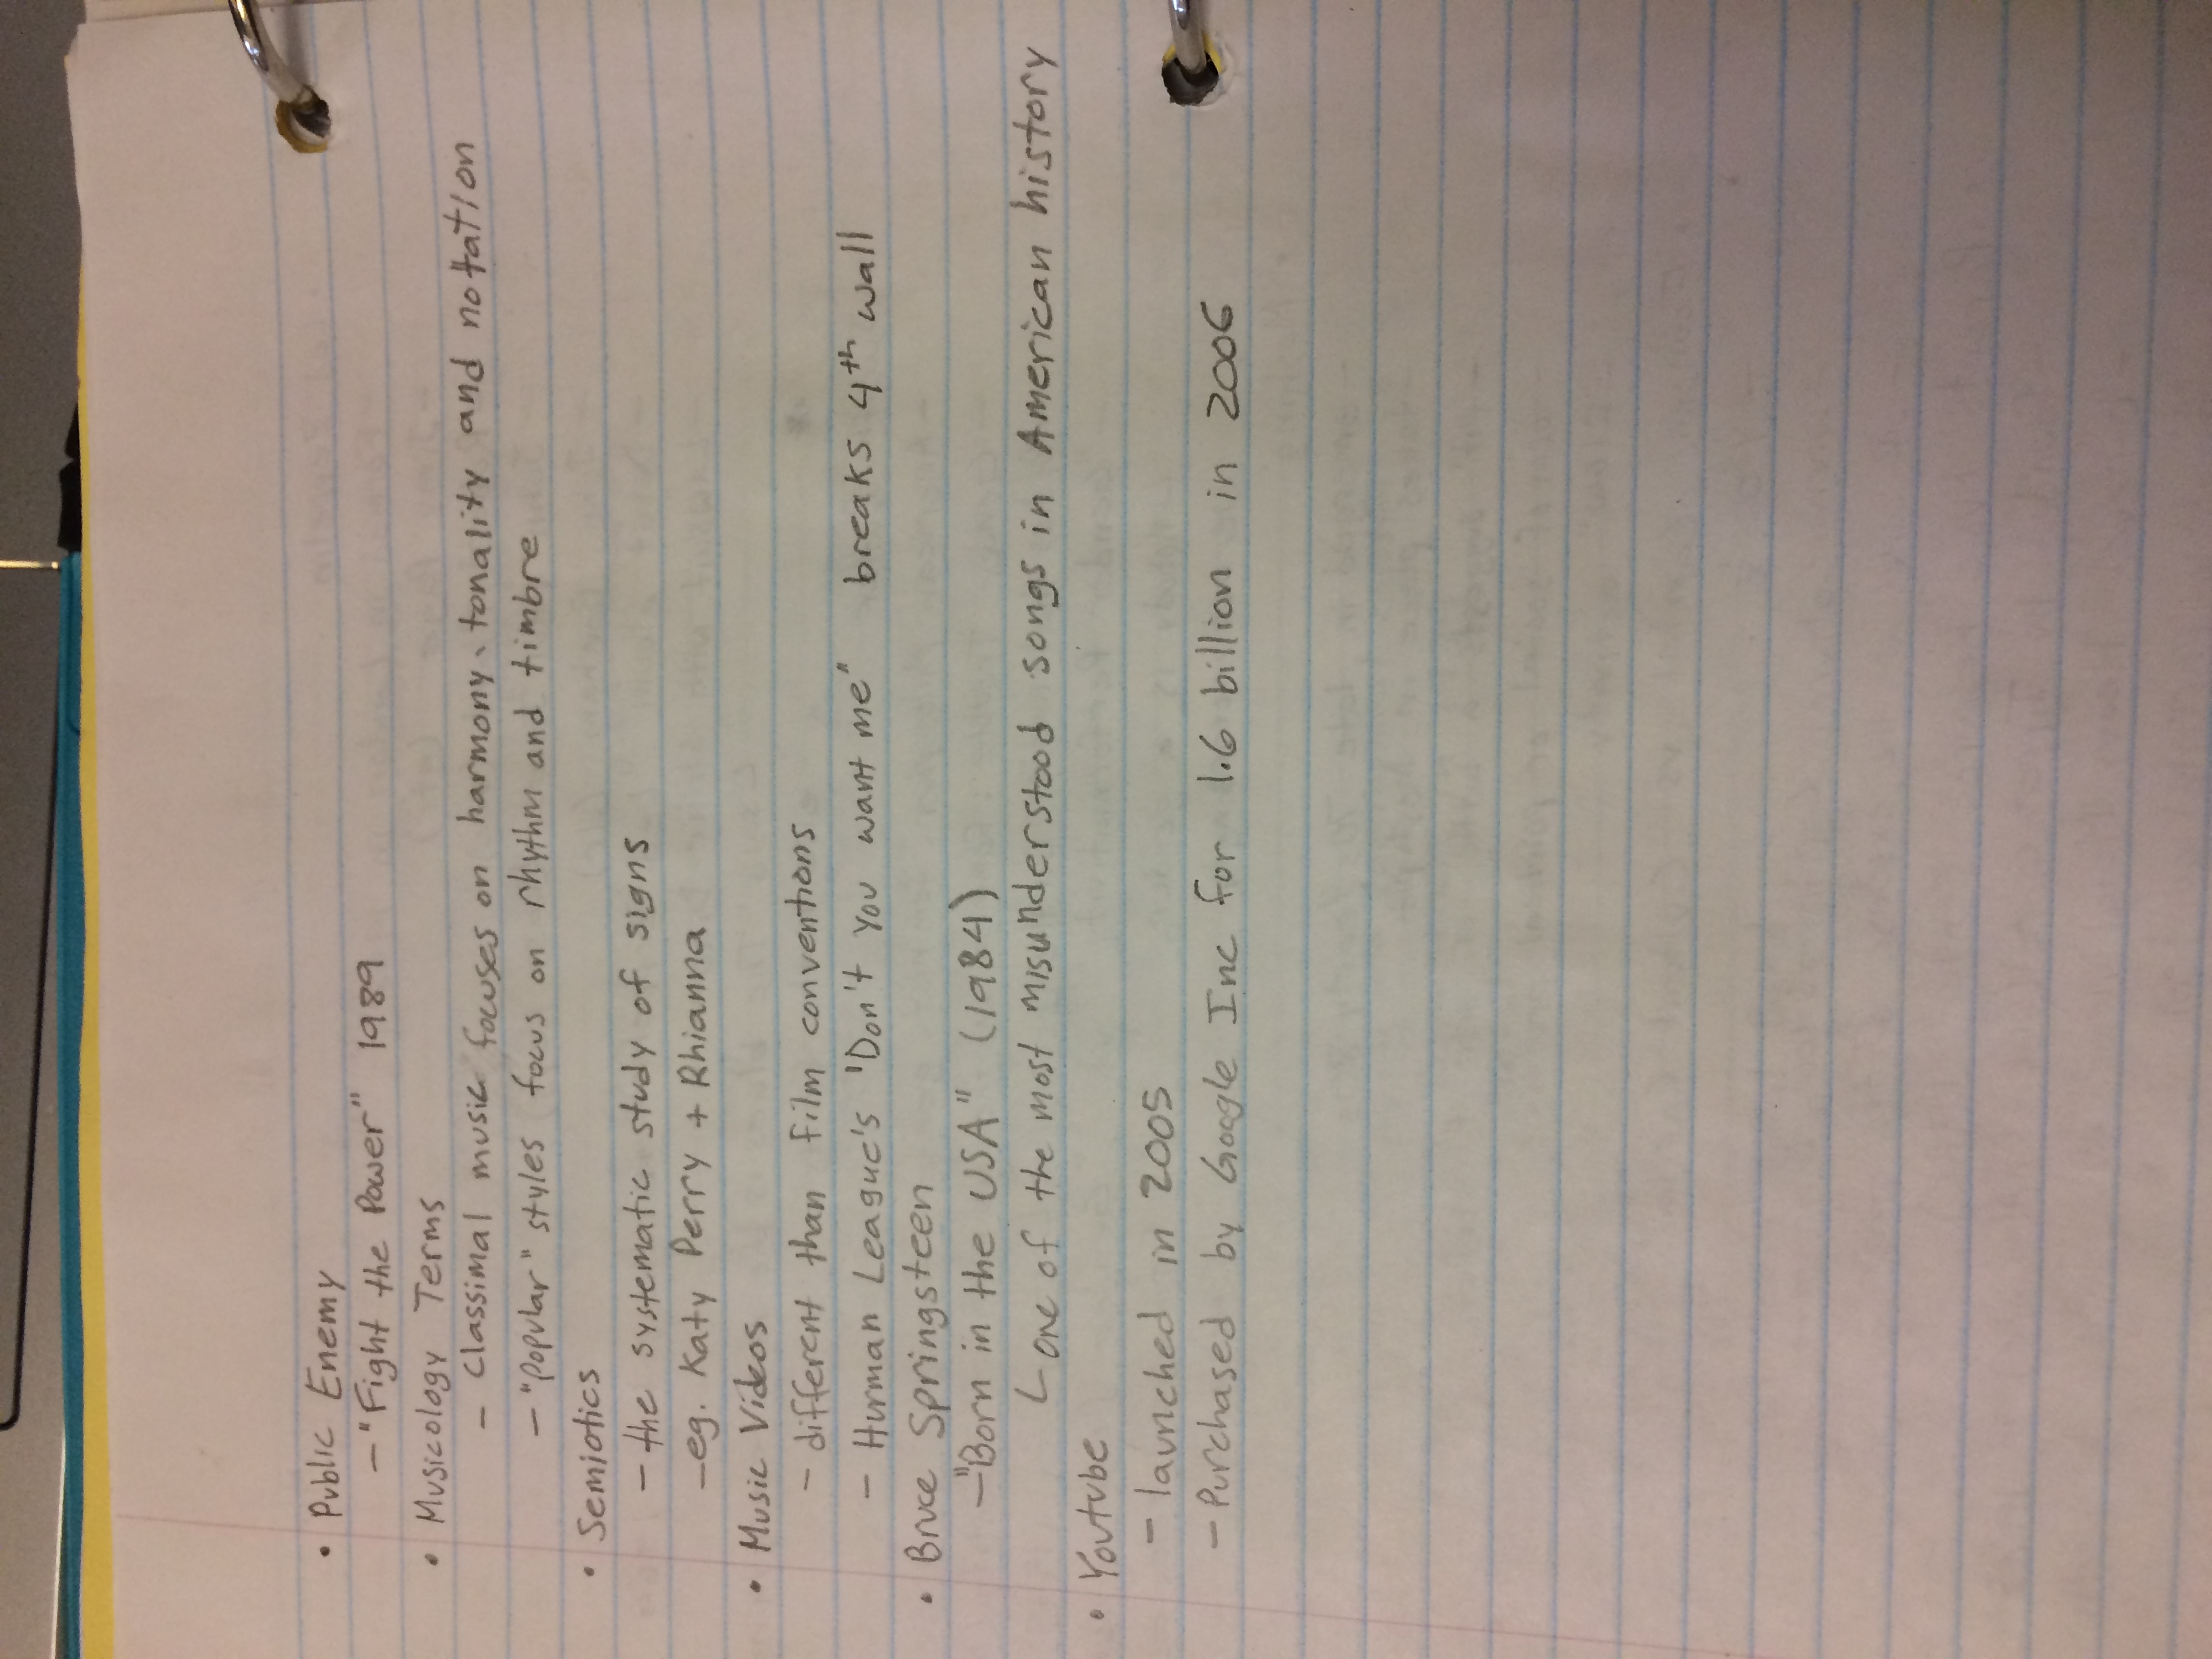 • Public Enemy
- "Fight the Power" 1989
• Musicology Terms
- Classimal music focuses on harmony, tonality and notation
- "Popular" styles focus on rhythm and timbre
• Semiotics
- the systematic study of signs
- eg. Katy Perry + Rhianna
• Music Videos
- different than film conventions
- Human League's "Don't you want me" breaks 4th wall
• Bruce Springsteen
- "Born in the USA" (1984)
L one of the most misunderstood songs in American history
• Youtube
- launched in 2005
- Purchased by Google Inc for 1.6 billion in 2006